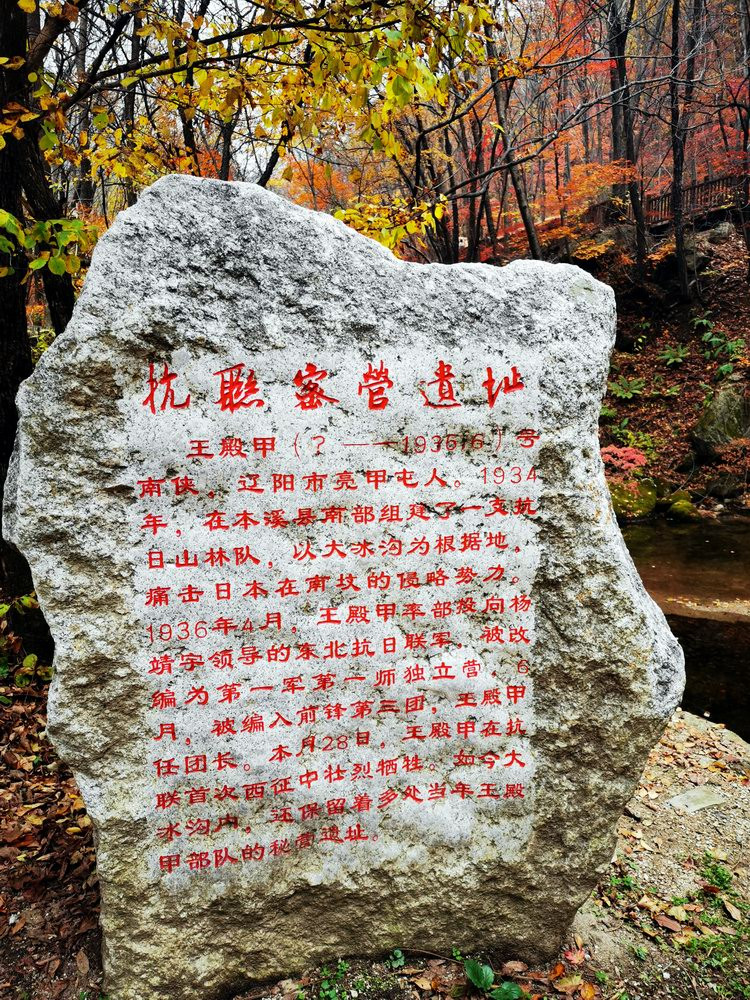 抗联密营遗址
王殿甲（？——1936.6）号
南侠，辽阳市亮甲屯人。1934
年，在本溪县南部组建了一支抗
日山林队，以大冰沟为根据地，
痛击日本在南坟的侵略势力。
1936年4月，王殿甲率部投向杨
靖宇领导的东北抗日联军，被改
编为第一军第一师独立营，6
月，被编入前锋第三团，王殿甲
任团长。本月28日，王殿甲在抗
联首次西征中壮烈牺牲。如今大
冰沟内，还保留着多处当年王殿
甲部队的秘营遗址。